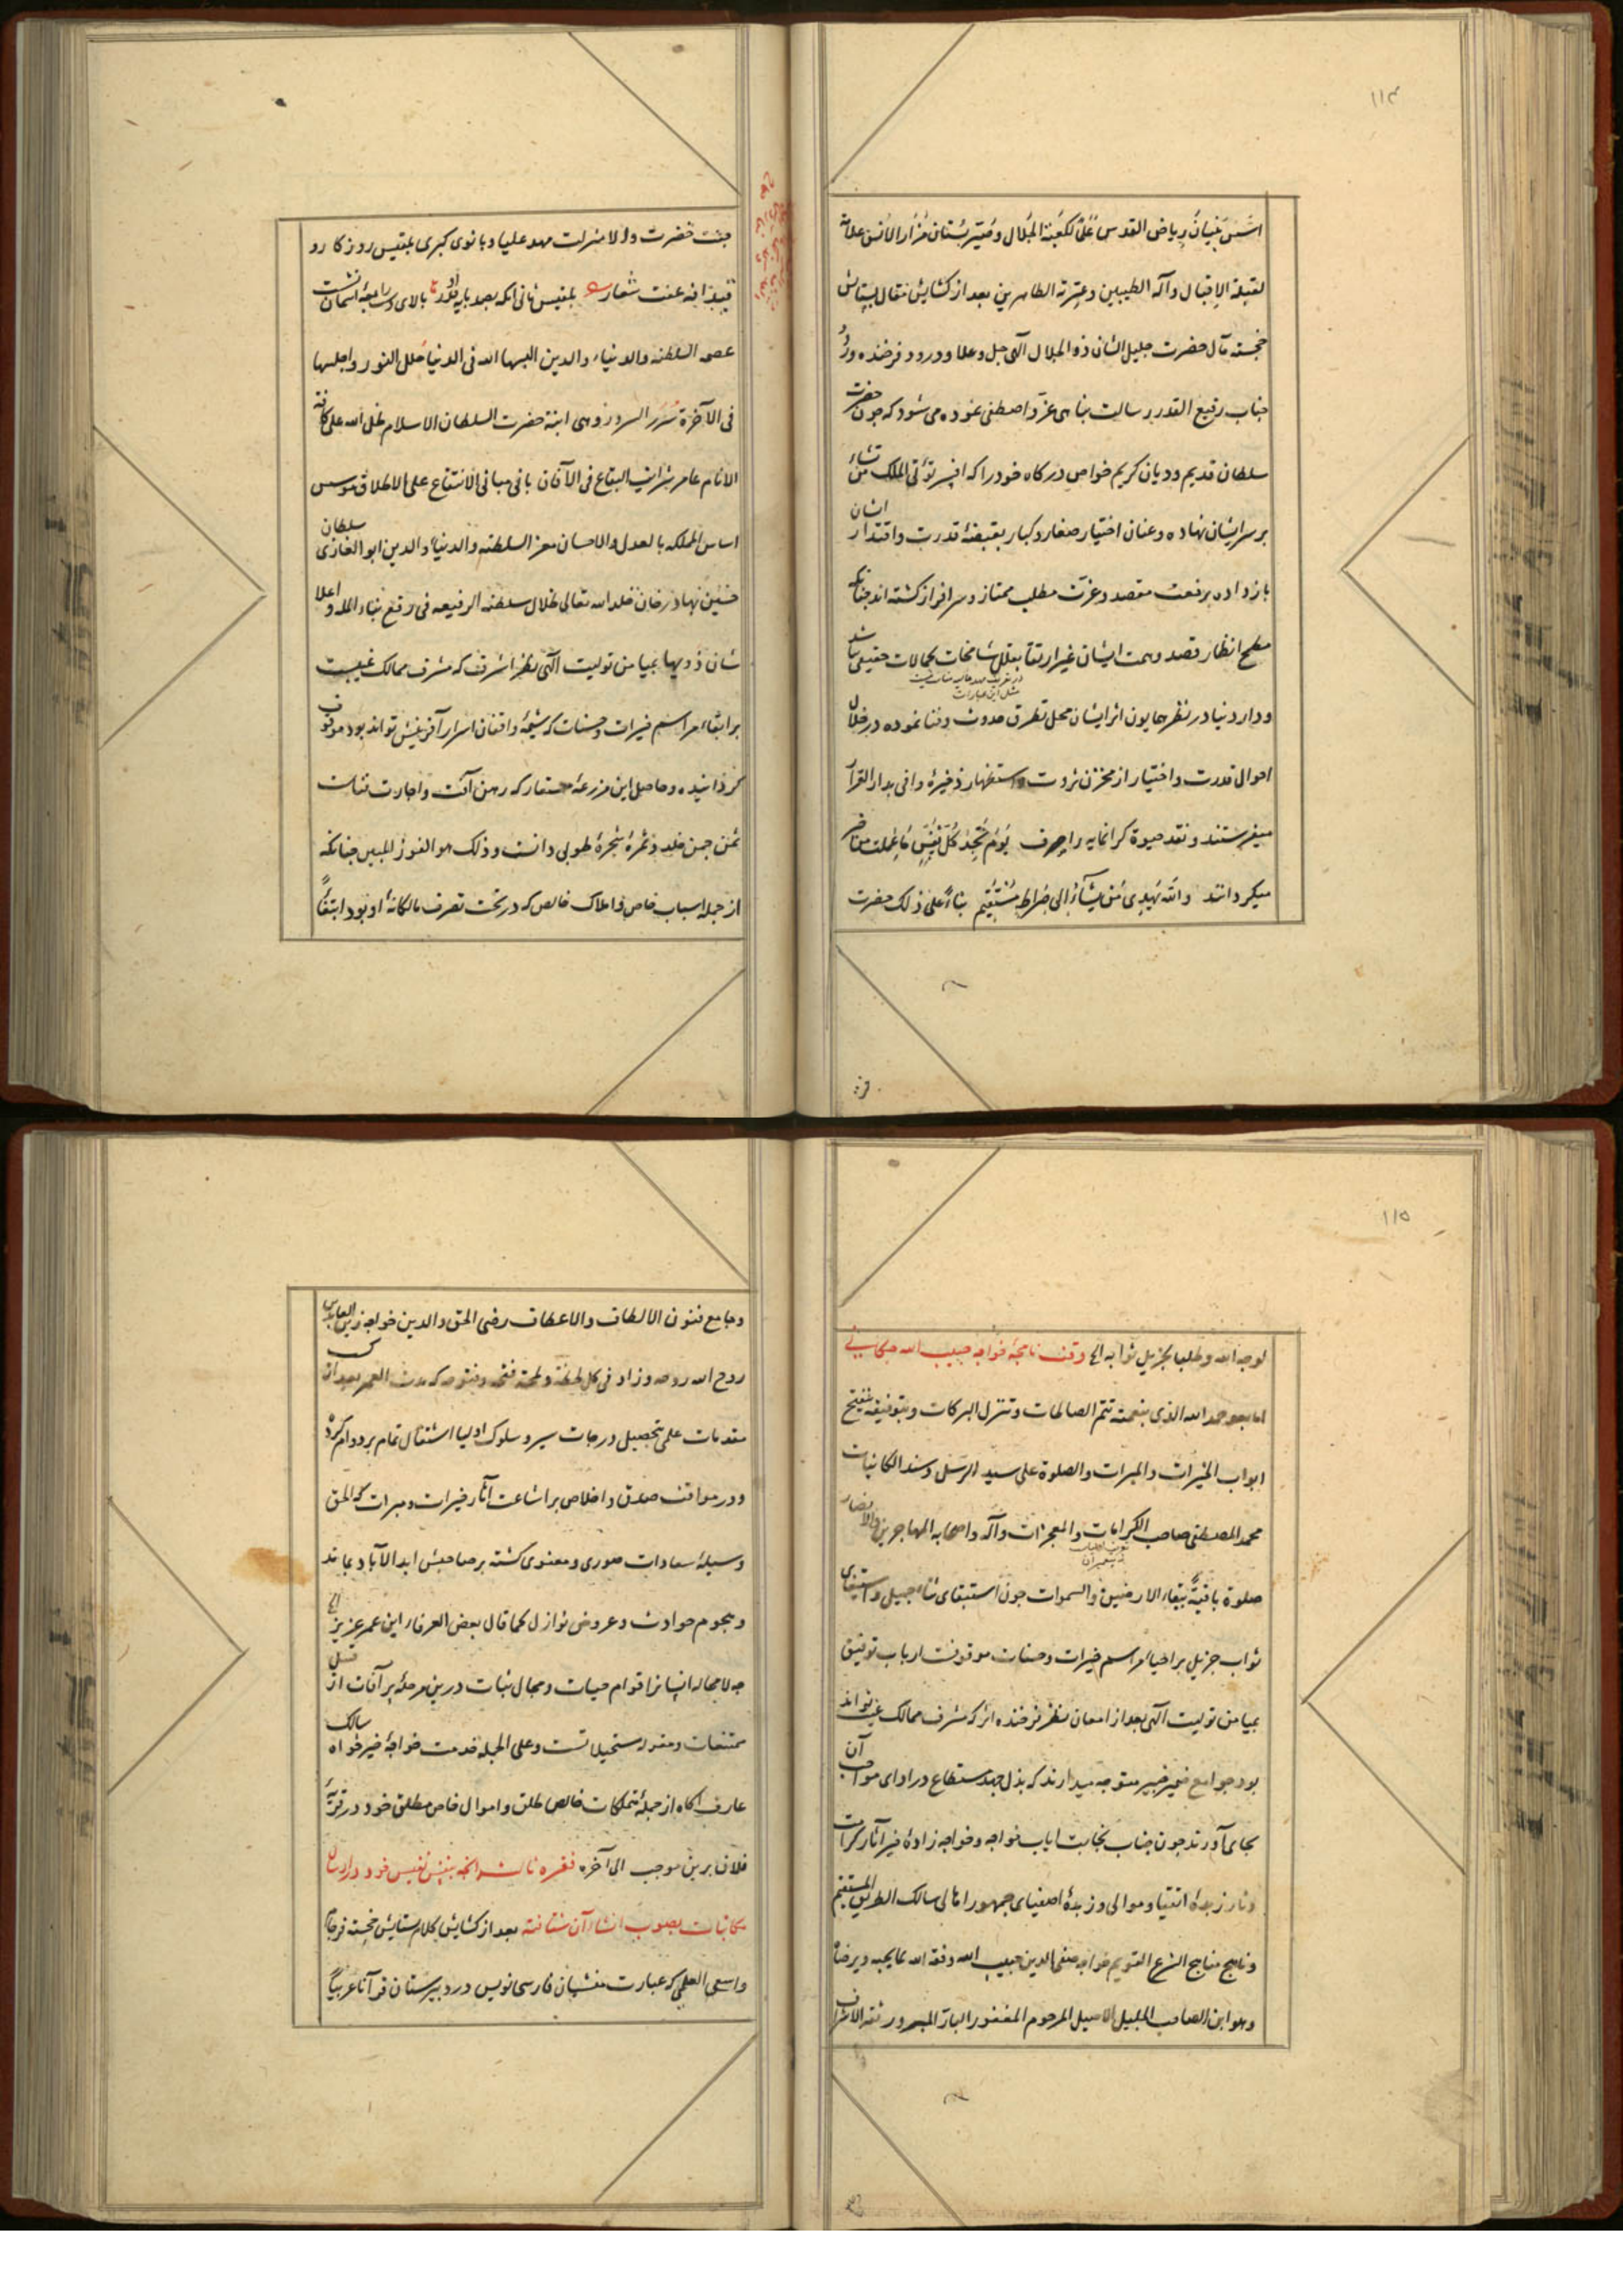 ۱۱۴
اسّس بنیان ریاض القدس علما لکعبة الجلال و میّز بستان مزار الانس علامة
لقبلة الاقبال وآله الطیبین وعترته الطاهرین بعد از کشایش مقال بستایش
خجسته مآل حضرت جلیل الشان ذو الجلال آلهی جل وعلا و درود فرخنده ورود
جناب رفیع القدر رسالت پناهی عزّ و اصطفی نموده می شود که چون حضرت
سلطان قدیم و دیان کریم خواص درکاه خود را که افسر تؤتی الملک من تشاء
بر سر ایشان نهاده و عنان اختیار صغار و کبار بقبضهٔ قدرت و اقتدار ایشان
باز داده برفعت مقصد و عزت مطلب ممتاز و سرافراز کشته اند چنانکه
مطمح انظار قصد و همت ایشان غیر ارتقا بقلل شامخات کمالات حقیقی نباشد
مثل این عبارات
و دار دنیا در نظر همایون اثر ایشان محل تطرق حدوث و فنا نموده در خلال
احوال قدرت و اختیار از مخزن ثروت و استظهار ذخیرهٔ وافی بدار القرار
میفرستند و نقد حیوة کرانمایه را صرف یَوْمَ تَجِدُ کُلُّ نَفْسٍ مَا عَمِلَت من خیر
میکردانند والله یَهدی مَن یَشَآءُ اِلی صِراطٍ مُسْتَقِیم بناءً علی ذلک حضرت
جنت حضرت والا منزلت مهد علیا و بانوی کبری بلقیس روزکار و
قیدافه عفت شعار بلقیس ثانی آنکه بصد پایه قدر او بالای رابعهٔ آسمان نشست
عصمة السلطنه والدنیا والدین البسها الله فی الدنیا حلل النور واجلسها
فی الآخرة سُرَر السرور وهی ابنة حضرت السلطان الاسلام ظل الله علی کافة
الانام عامر شرایف البقاع فی الآفاق بانی مبانی الانتفاع علی الاطلاق موسس
اساس المملکه بالعدل والاحسان معز السلطنه والدنیا والدین ابو الغازی سلطان
حسین بهادر خان خلد الله تعالی ظلال سلطنه الرفیعه فی رفع بناء المله و اعلا
شان ذویها بمیامن تولیت آلهی نظر اشرف که مشرف ممالک غیبست
بر ابقاء مراسم خیرات و حسنات که شیمهٔ واقفان اسرار آفرینش تواند بود موقوف
کردانیده و حاصل این مزرعهٔ مستعار که رهن آفت و اجارت فناست
ثمن چمن خلد و ثمرهٔ شجرهٔ طوبی دانست و ذلک هو الفوز المبین چنانکه
از جمله اسباب خاص و املاک خالص که در تحت تصرف مالکانهٔ او بود ابتغاً
۱۱۵
لوجه الله وطلبا لجزیل ثوابه الخ وقف نامچهٔ خواجه حبیب الله میکانی
اما بعد حمد الله الذی بنعمته تتم الصالحات و تتنزل البرکات و بتوفیقه یفتح
ابواب الخیرات والمبرات والصلوة علی سید الرسل وسند الکائنات
محمد المصطفی صاحب الکرامات والمعجزات وآله واصحابه المهاجرین والانصار
صلوة باقیةً ببقاء الارضین والسموات چون استبقای ثناء جمیل و استیفای
ثواب جزیل بر احیاء مراسم خیرات و حسنات موقوفست ارباب توفیق
بمیامن تولیت آلهی بعد از امعان نظر فرخنده اثر که مشرف ممالک غیب تواند
بود جوامع ضمیر خبیر متوجه میدارند که بذل جهد مستطاع در ادای مواجب آن
بجای آورند چون جناب نجابت ایاب خواجه و خواجه زادهٔ خیر آثار کرامت
دثار زبدهٔ اتقیا و موالی و زبدهٔ اصفیای جمهور اهالی سالک الطریق المستقیم
و ناهج مناهج الشرع القویم خواجه صفی الدین حبیب الله وفقه الله بما یحبه ویرضاه
و هو ابن الصاحب الجلیل الاصیل المرحوم المغفور البار المبرور ثقة الاشراف
و جامع فنون الالطاف والاعطاف رضی الحق والدین خواجه زین العابدین
روح الله روحه و زاد فی کل لحظة و لمحة فتحه و فتوحه که مدت العمر بعد از کسب
مقدمات علمی بتحصیل درجات سیر و سلوک اولیا اشتغال تمام بر دوام کرده
و در مواقف صدق و اخلاص بر اشاعت آثار خیرات و مبرات که الحق
وسیلهٔ سعادات صوری و معنوی کشته بر صاحبش ابد الآباد بماند
و هجوم حوادث و عروض نوازل کما قال بعض العرفاء این عمر عزیز الخ
چه لا محاله انسانرا قوام حیات و مجال ثبات درین مرحلهٔ پر آفات از قبیل
ممتنعات و مقوله مستحیلاتست و علی الجمله خدمت خواجهٔ خیرخواه سالک
عارف آکاه از جملهٔ متملکات خالص طلق و اموال خاص مطلق خود در قریهٔ
فلان برین موجب الی آخره فقره ثالث آنچه بنفس نفیس خود و دارات
مکاتبات بصوب انشاء آن شتافته بعد از کشایش کلام ستایش خجسته فرجام
واسعی العلمی که عبارت منشیان فارسی نویس در دبیرستان قرآنا عربیاً